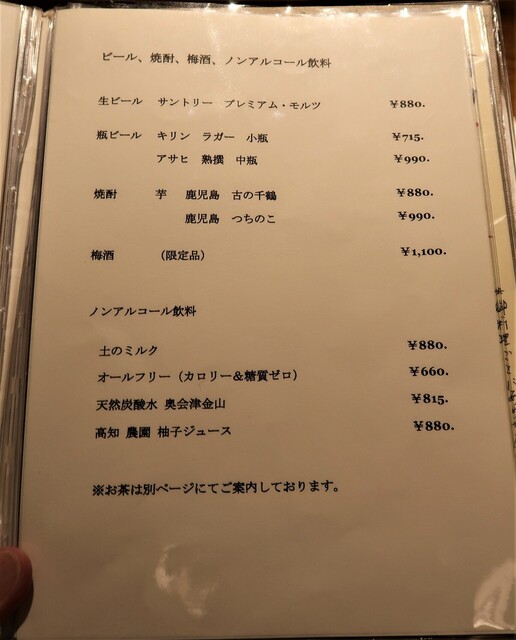 ビール、焼酎、梅酒、ノンアルコール飲料
生ビール サントリー プレミアム・モルツ ¥880.
瓶ビール キリン ラガー 小瓶 ¥715.
アサヒ 熟撰 中瓶 ¥990.
焼酎 芋 鹿児島 古の千鶴 ¥880.
鹿児島 つちのこ ¥990.
梅酒 (限定品) ¥1,100.
ノンアルコール飲料
土のミルク ¥880.
オールフリー(カロリー&糖質ゼロ) ¥660.
天然炭酸水 奥会津金山 ¥815.
高知 農園 柚子ジュース ¥880.
※お茶は別ページにてご案内しております。
御料理